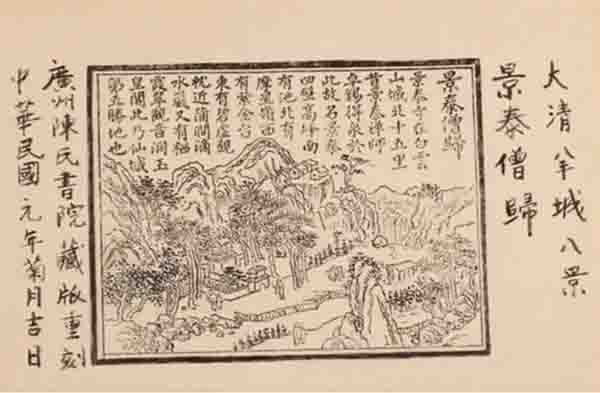 大清羊城八景
景泰僧歸
景泰僧歸
景泰寺在白雲
山城北十五里
昔景泰禪師
卓錫得泉於
此故名景泰
四壁高峰南
有池北有
摩星嶺西
有紫金台
東有碧虛觀
枕近蒲澗滴
水巖又有棲
霞翠觀音澗玉
皇閣此乃仙城
第五勝地也
廣州陳氏書院藏版重刻
中華民國元年菊月吉日